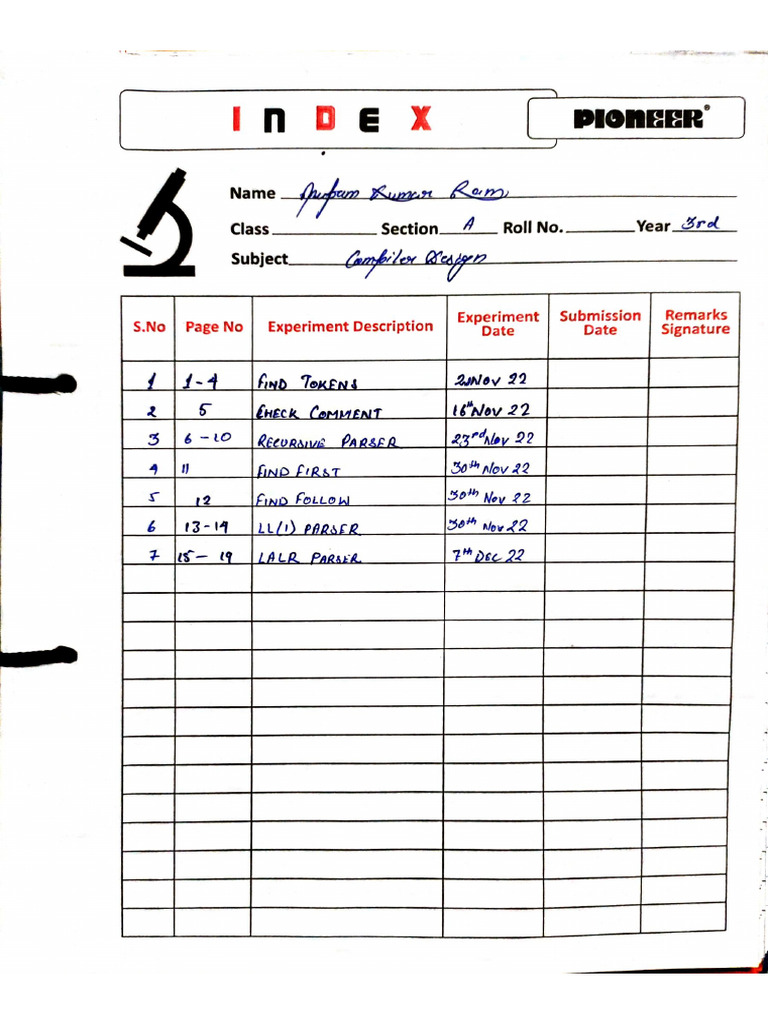 INDEX PIONEER®
Name Anupam Kumar Ram
Class Section A Roll No. Year 3rd
Subject Compiler Design
S.No Page No Experiment Description Experiment Date Submission Date Remarks Signature
1 1-4 FIND TOKENS 2nd Nov 22
2 5 CHECK COMMENT 16th Nov 22
3 6-10 RECURSIVE PARSER 23rd Nov 22
4 11 FIND FIRST 30th Nov 22
5 12 FIND FOLLOW 30th Nov 22
6 13-14 LL(1) PARSER 30th Nov 22
7 15-19 LALR PARSER 7th DEC 22